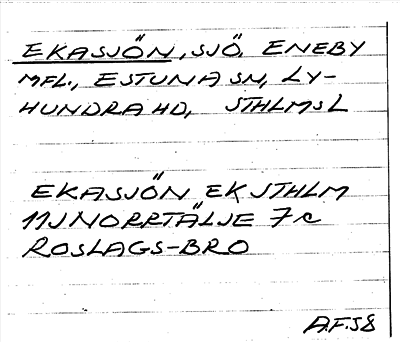 EKASJÖN, SJÖ, ENEBY
MFL., ESTUNA SN, LY-
HUNDRA HD, STHLMSL
EKASJÖN EK STHLM
11J NORRTÄLJE 7c
ROSLAGS-BRO
A.F.58